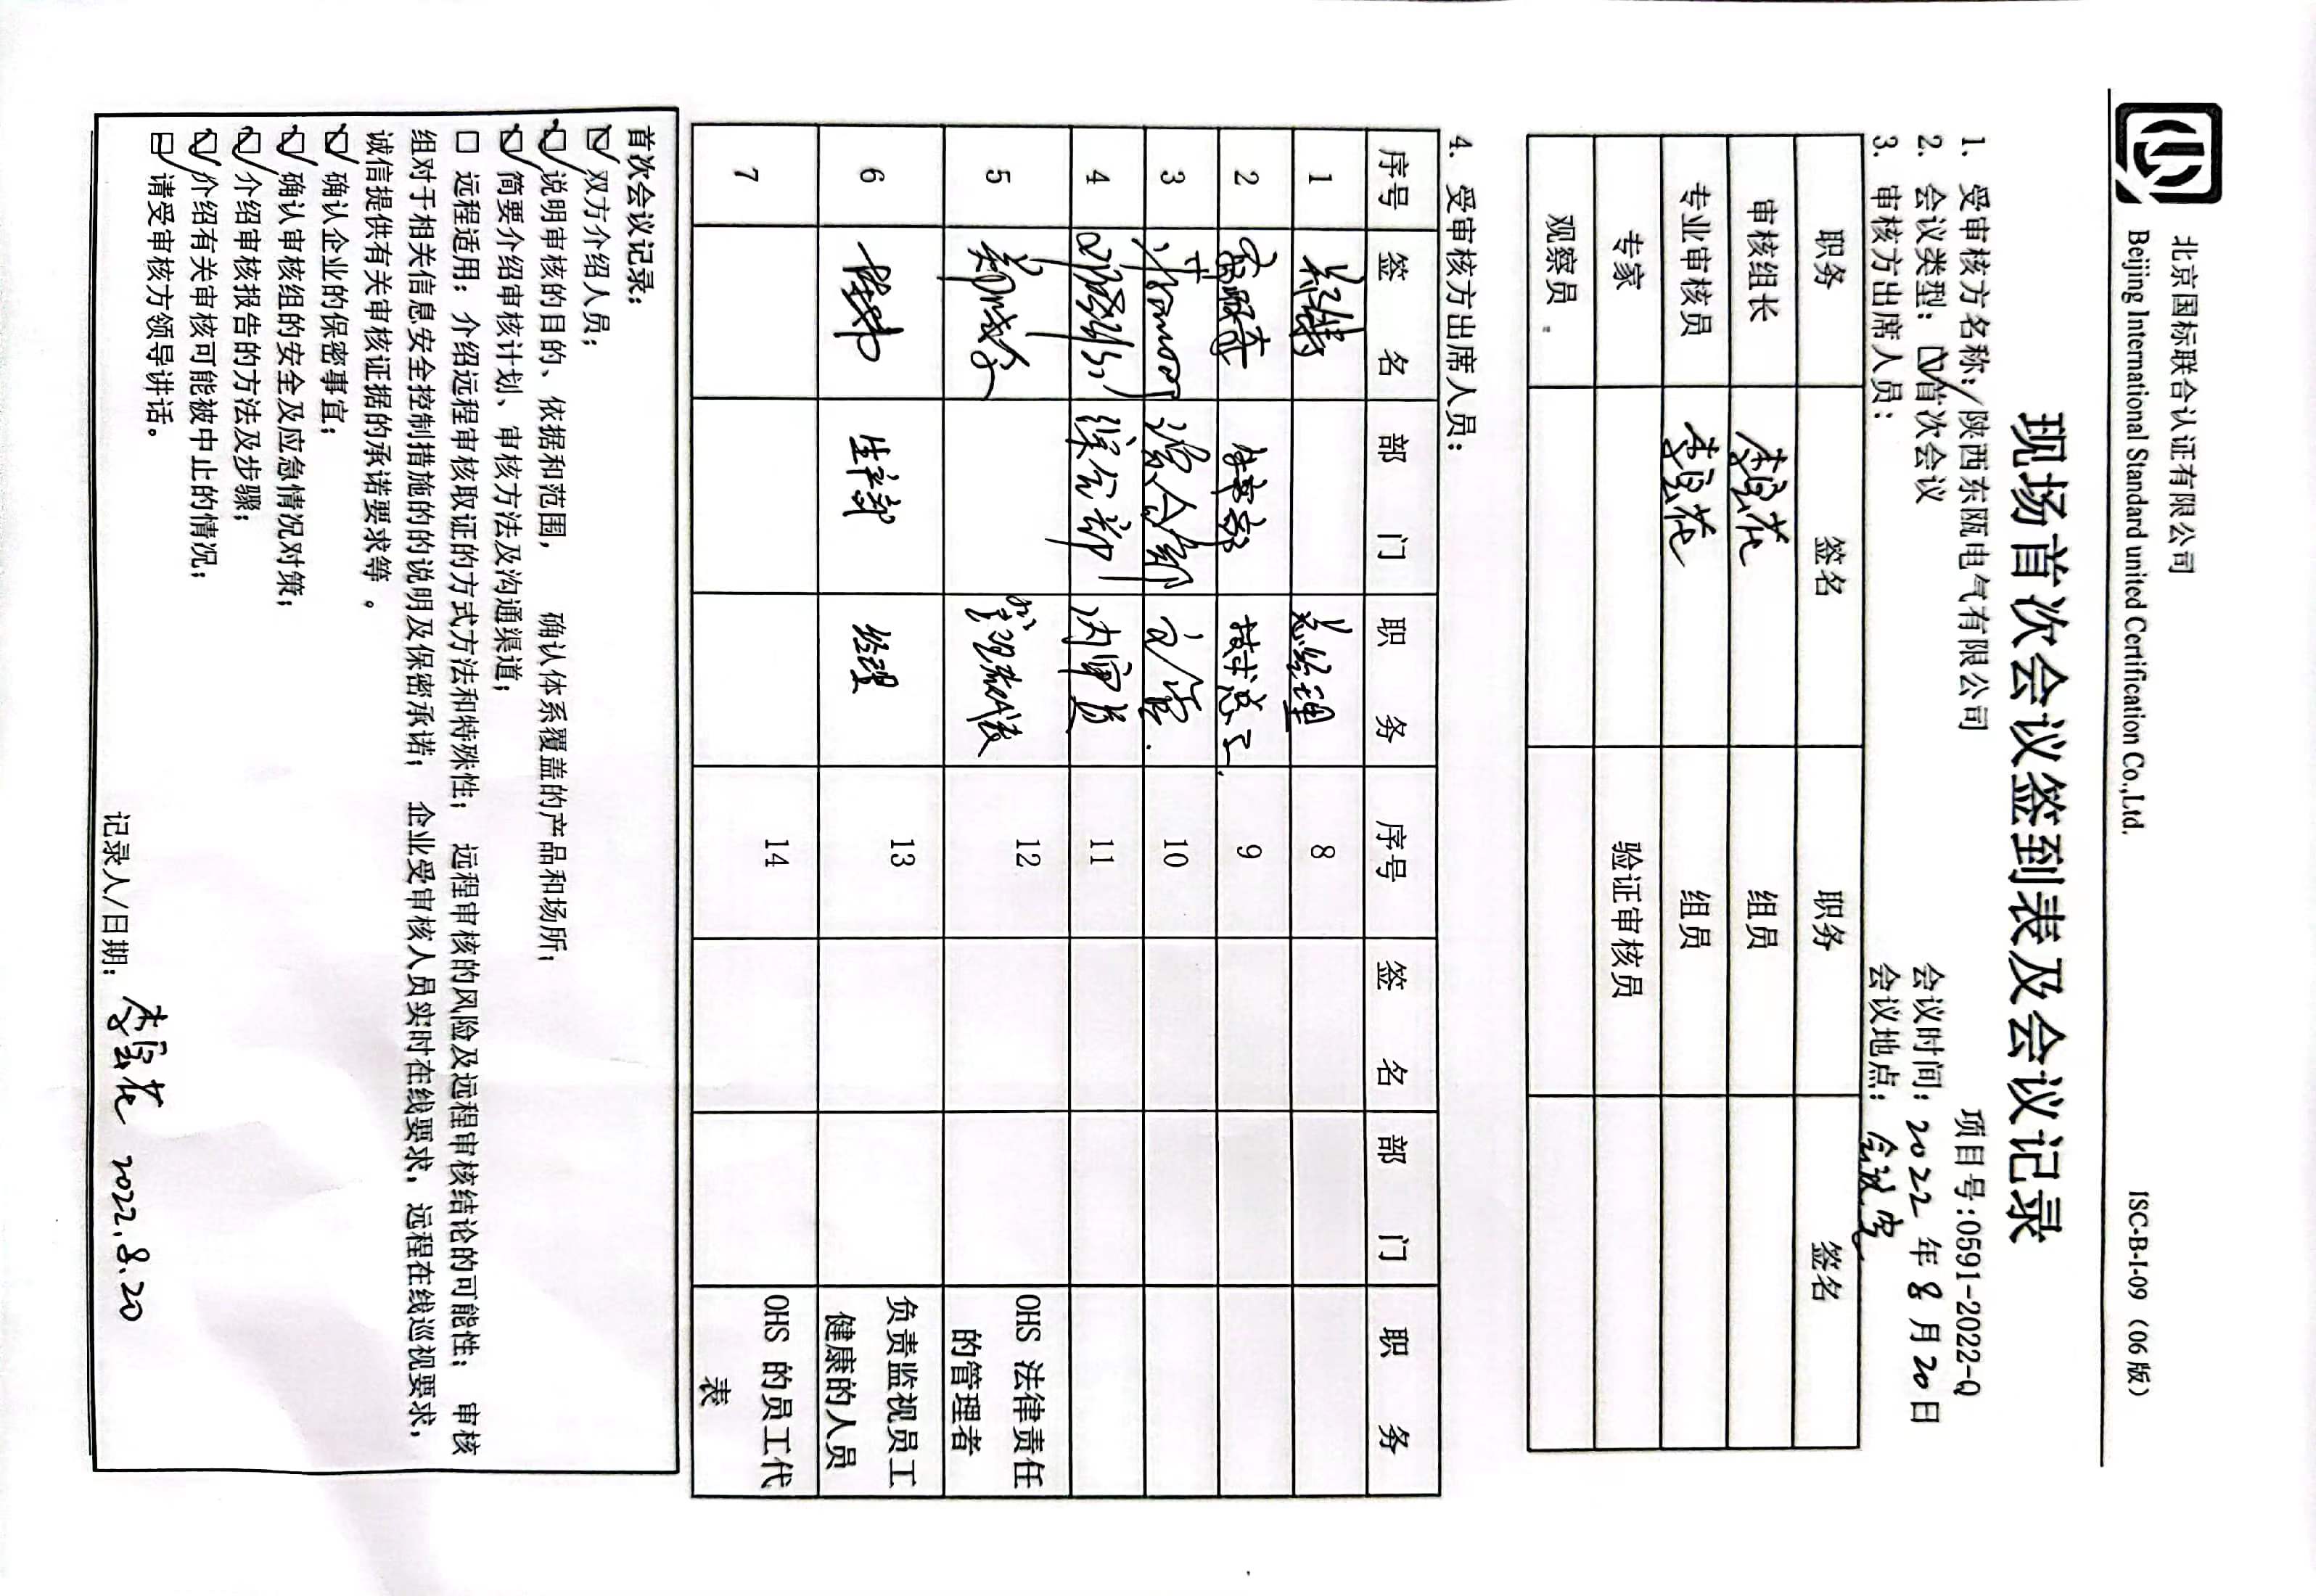 北京国标联合认证有限公司
Beijing International Standard united Certification Co.,Ltd.
ISC-B-I-09（06版）
现场首次会议签到表及会议记录
1. 受审核方名称: 陕西东瓯电气有限公司 项目号:0591-2022-Q
2. 会议类型: ☑首次会议 会议时间: 2022 年 8 月 20 日
3. 审核方出席人员: 会议地点: 会议室
职务 签名 职务 签名
审核组长 组员
专业审核员 组员
专家 验证审核员
观察员
4. 受审核方出席人员:
序号 签 名 部 门 职 务 序号 签 名 部 门 职 务
1 总经理 8
2 9
3 10
4 内审员 11
5 12 OHS 法律责任
的管理者
6 生产部 经理 13 负责监视员工
健康的人员
7 14 OHS 的员工代
表
首次会议记录:
☑双方介绍人员;
☑说明审核的目的、依据和范围, 确认体系覆盖的产品和场所;
☑简要介绍审核计划、审核方法及沟通渠道;
□ 远程适用: 介绍远程审核取证的方式方法和特殊性; 远程审核的风险及远程审核结论的可能性; 审核
组对于相关信息安全控制措施的的说明及保密承诺; 企业受审核人员实时在线要求, 远程在线巡视要求,
诚信提供有关审核证据的承诺要求等 。
☑确认企业的保密事宜;
☑确认审核组的安全及应急情况对策;
☑介绍审核报告的方法及步骤;
☑介绍有关审核可能被中止的情况;
☑请受审核方领导讲话。
记录人/日期: 2022.8.20